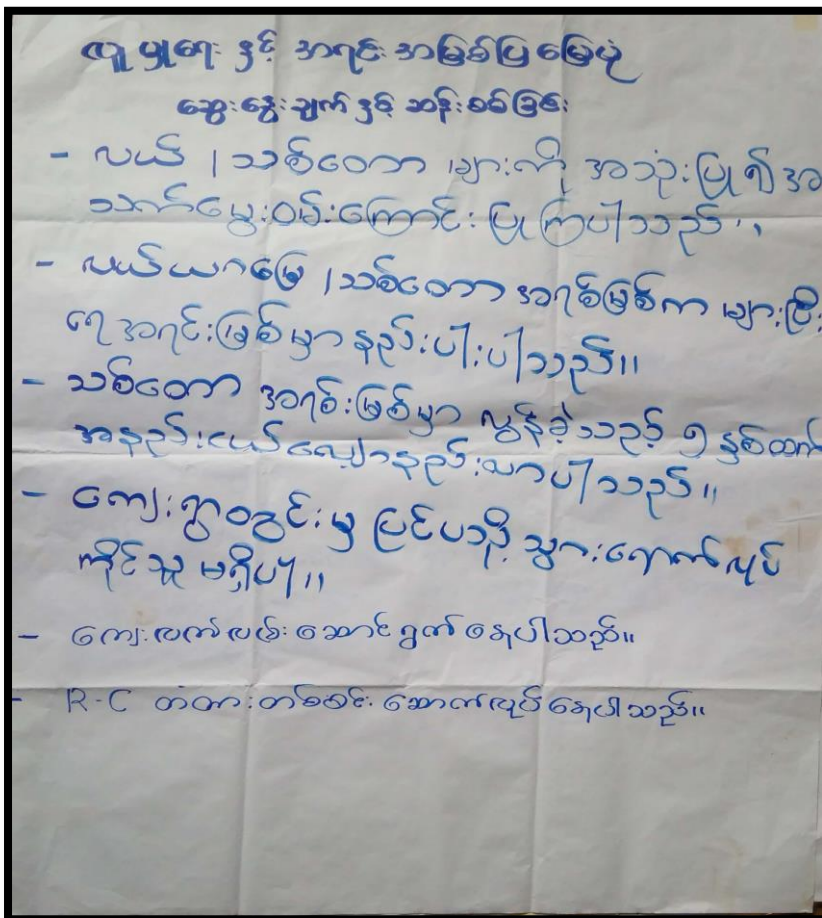 လူမှုရေး နှင့် အရင်းအမြစ်ပြ မြေပုံ
ဆွေးနွေးချက် နှင့် ဆန်းစစ်ခြင်း
- လယ် / သစ်တော များကို အသုံးပြု၍ အ
သက်မွေးဝမ်းကြောင်း ပြုကြပါသည်။
- လယ်ယာမြေ / သစ်တော အရင်းမြစ်က များပြီး
ရေအရင်းမြစ်မှာ နည်းပါးပါသည်။
- သစ်တော အရင်းမြစ်မှာ လွန်ခဲ့သည့် ၅ နှစ်ထက်
အနည်းငယ်လျော့နည်းလာပါသည်။
- ကျေးရွာတွင်းမှ ပြင်ပသို့ သွားရောက်လုပ်
ကိုင်သူ မရှိပါ။
- ကျေးလက်လမ်းဆောင်ရွက်နေပါသည်။
- R-C တံတားတစ်စင်း ဆောက်လုပ်နေပါသည်။